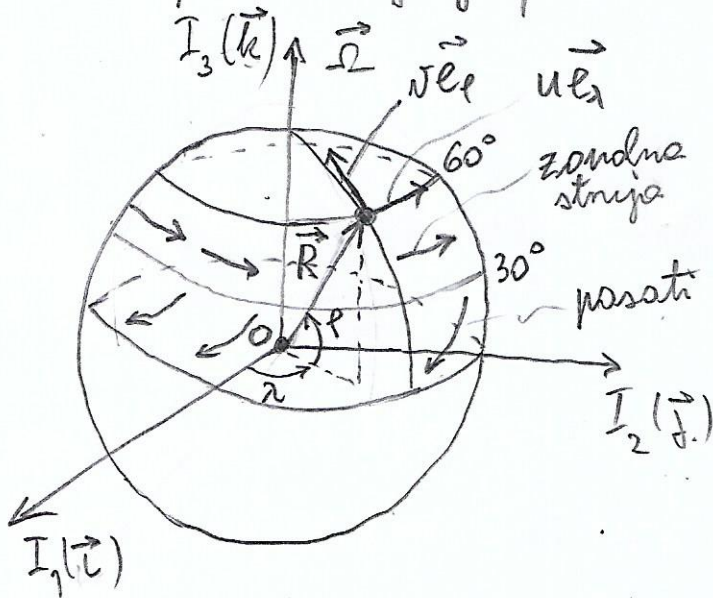 I₃(k⃗)
Ω⃗
v e⃗_φ
u e⃗_λ
60°
zonalna
struja
R⃗
30°
pasati
O
φ
λ
I₂(j⃗)
I₁(i⃗)